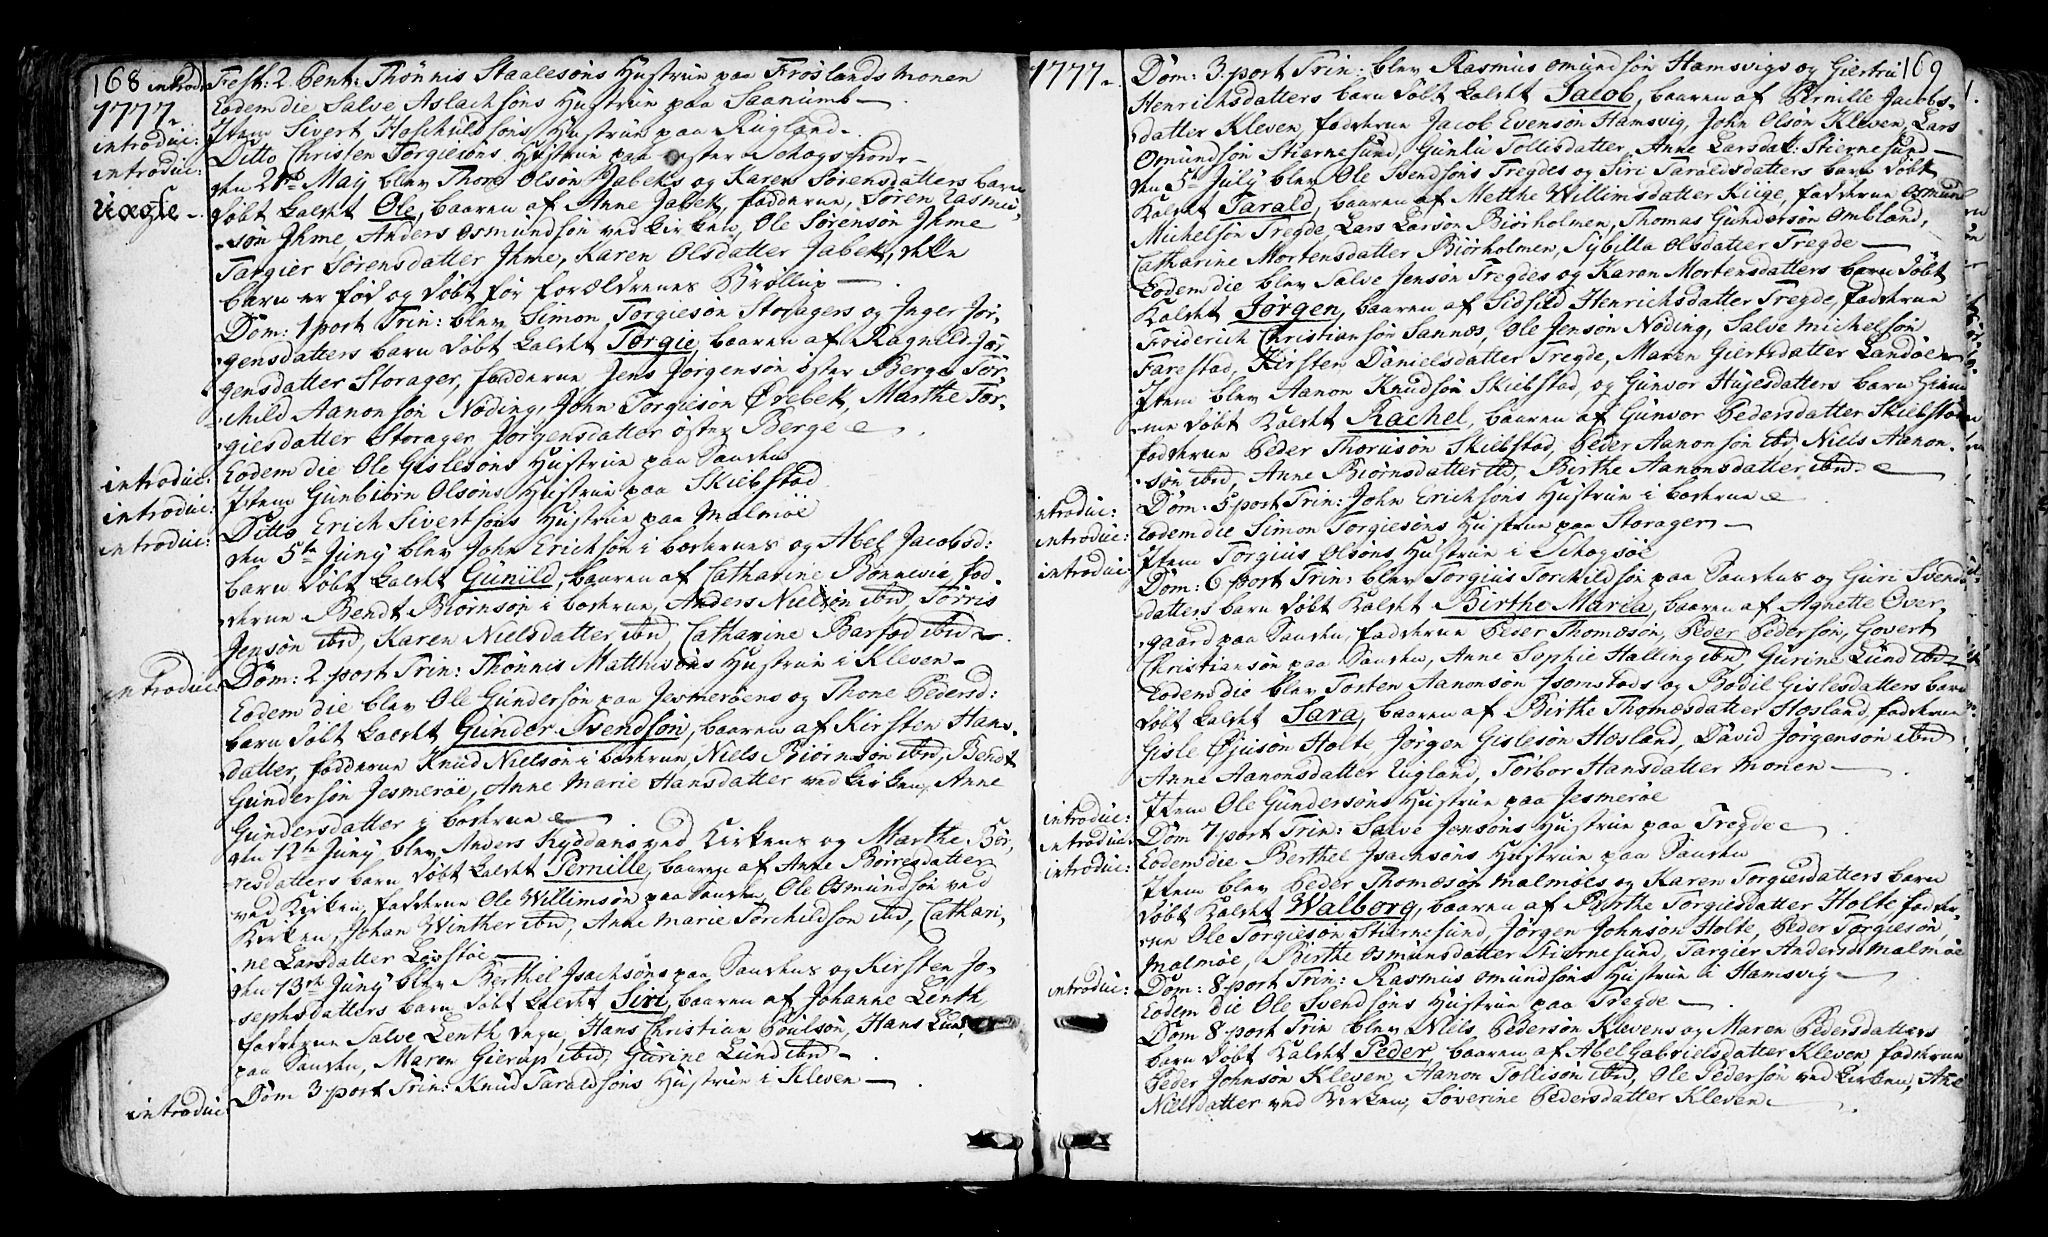 168 introd: Fest: 2 Pent: Thönnis Staalesöns Hustrue paa Fröslands Monen
1777 Eodem die Salve Aslachsöns Hustrue paa Saanumb
introduc: Item Sivert Haschuldsöns Hustrue paa Rugland
introduc: Ditto Christen Torgiesöns Hustrue paa öster Schogsfiord
den May blev Thore Olsön Jabeks og Karen Sörensdatters barn
Uægte döbt kaldet Ole, baaren af Anne Jabek, fadderne, Sören Rasmu-
sön Ihme, Anders Osmundsön ved Kirken, Ole Sörensön Ihme
Targier Sörensdatter Ihme, Karen Olsdatter Jabek, dette
barn er föd og döbt för forældrenes Bröllup
Dom: 1 port Trin: blev Simon Torgiesön Storagers og Inger Jör-
gensdatters barn döbt kaldet Torgie, baaren af Ragnild Jör
gensdatter Storager, fadderne Jens Jörgensön öster Berge Tor-
child Aanonsön Nöding, John Torgiesön Ørebek, Marthe Tor-
giesdatter Storager Jörgensdatter öster Berge
introduc: Eodem die Ole Gislesöns Hustrue paa Sanden
introduc: Item Gunbiörn Olsöns Hustrue paa Skiebstad
introduc: Ditto Erich Sivertsöns Hustrue paa Malmöe
den 5te Juny blev John Erichsön i boderne og Abel Jacobsd:
barn döbt kaldet Gunild, baaren af Catharine Bonnevie fad-
derne Bendt Biörnsön i boderne, Anders Nielsön ibd, Torris
Jensön ibd, Karen Nielsdatter ibd, Catharine Barfod ibd
introduc: Dom: 2 port Trin: Thönnis Matthisöns Hustrue i Kleven
Eodem die blev Ole Gundersön paa Jesmeröens og Thone Pedersd:
barn döbt kaldet Gunder Svendsön, baaren af Kirsten Hans-
datter, fadderne Knud Nielsön i boderne, Niels Biörnsön ibd, Bendt
Gundersön Jesmeröe, Anne Marie Hansdatter ved Kirken, Anne
Gundersdatter i boderne
den 12te Juny blev Anders Ryddans ved Kirkens og Marthe Bör-
resdatters barn döbt kaldet Pernille, baaren af Anne Börresdatter
ved Kirken, fadderne Ole Willimsön paa Sanden, Ole Osmundsön ved
Kirken, Johan Winther ibd, Anne Marie Torchildsön ibd, Cathari-
ne Larsdatter
den 13te Juny blev Berthel Isachsöns paa Sandens og Kirsten Jo-
sephsdatters barn döbt kaldet Siri, baaren af Johanne Lenth
fadderne Salve Lenth Hans Christian Poulsön, Hans Lund
paa Sanden, Maren Gierup ibd, Gurine Lund ibd
introduc: Dom 3 port Trin: Knud Taraldsöns Hustrue i Kleven
1777 Dom: 3. port Trin: blev Rasmus Omundsön Hamsvigs og Giertru 169
Henrichsdatters barn döbt kaldet Jacob, baaren af Pernille Jacobs-
datter Kleven, fadderne Jacob Evensön Hamsvig, John Olsön Kleven, Lars
Osmundsön Stiernesund, Gunlu Tollisdatter, Anne Larsdat: Stiernesund
den 5te July blev Ole Svendsöns Tregdes og Siri Taraldsdatters barn döbt
kaldet Tarald, baaren af Metthe Willimsdatter Kiige, fadderne Osmund
Michelsön Tregde Lars Larsön Biörholmen, Thomas Gundersön Ombland,
Catharine Mortensdatter Biörholmen, Sybilla Olsdatter Tregde
Eodem die blev Salve Jensön Tregdes og Karen Mortensdatters barn döbt
kaldet Jörgen, baaren af Sidsild Henrichsdatter Tregde, fadderne
Friderich Christiansön Sannæs, Ole Jensön Nöding, Salve Michelsön
Farestad, Kirsten Danielsdatter Tregde, Maren Giertsdatter Landöe
Item blev Aanon Knudsön Skiebstad, og Gunvor Hujesdatters barn hiem-
me döbt kaldet Rachel, baaren af Gunvor Pedersdatter Skiebstad
fadderne Peder Thorisön Skiebstad, Peder Aanonsön ibd, Niels Aanon-
sön ibd, Anne Biörnsdatter ibd, Birthe Aanonsdatter ibd
introduc: Dom: 5 port Trin: John Erichsöns Hustrue i boderne
introduc: Eodem die Simon Torgiesöns Hustrue paa Storager
introduc: Item Torgius Olsöns Hustrue i Schogsöe
Dom: 6 port Trin: blev Torgius Torchildsön paa Sandens og Guri Svends-
datters barn döbt kaldet Birthe Maria, baaren af Agnette Over-
gaard paa Sanden, fadderne Peder Thomæsön, Peder Pedersön, Govert
Christiansön paa Sanden, Anne Sophie Halling ibd, Gurine Lund ibd
Eodem die blev Torsten Aanonsön Isomstads og Bodil Gislesdatters barn
döbt kaldet Sara, baaren af Birthe Thomæsdatter Hosland, fadderne
Gisle Øjusön Holte, Jörgen Gislesön Hosland, David Jörgensön ibd
Anne Aanonsdatter Rugland, Torbor Hansdatter Monen
introduc: Item Ole Gundersöns Hustrue paa Jesmeröe
introduc: Dom 7 port Trin: Salve Jensöns Hustrue paa Tregde
introduc: Eodem die Berthel Isachsöns Hustrue paa Sanden
Item blev Peder Thomæsön Malmöes og Karen Torgiesdatters barn
döbt kaldet Walborg, baaren af Birthe Torgiesdatter Holte, fadder-
ne Ole Torgiesön Stiernesund, Jörgen Johnsön Holte, Peder Torgiesön,
Malmöe, Birthe Osmunsdatter Stiernesund, Targier Andersd Malmöe
introduc: Dom: 8 port Trin: Rasmus Omundsöns Hustrue i Hamsvig
Eodem die Ole Svendsöns Hustrue paa Tregde
Dom 8 port Trin blev Niels Pedersön Klevens og Maren Pedersdatters
barn döbt kaldet Peder, baaren af Abel Gabrielsdatter Kleven, fadderne
Peder Johnsön Kleven, Aanon Tollisön ibd, Ole Pedersön ved Kirken, Ane
Nielsdatter ved Kirken, Söverine Pedersdatter Kleven